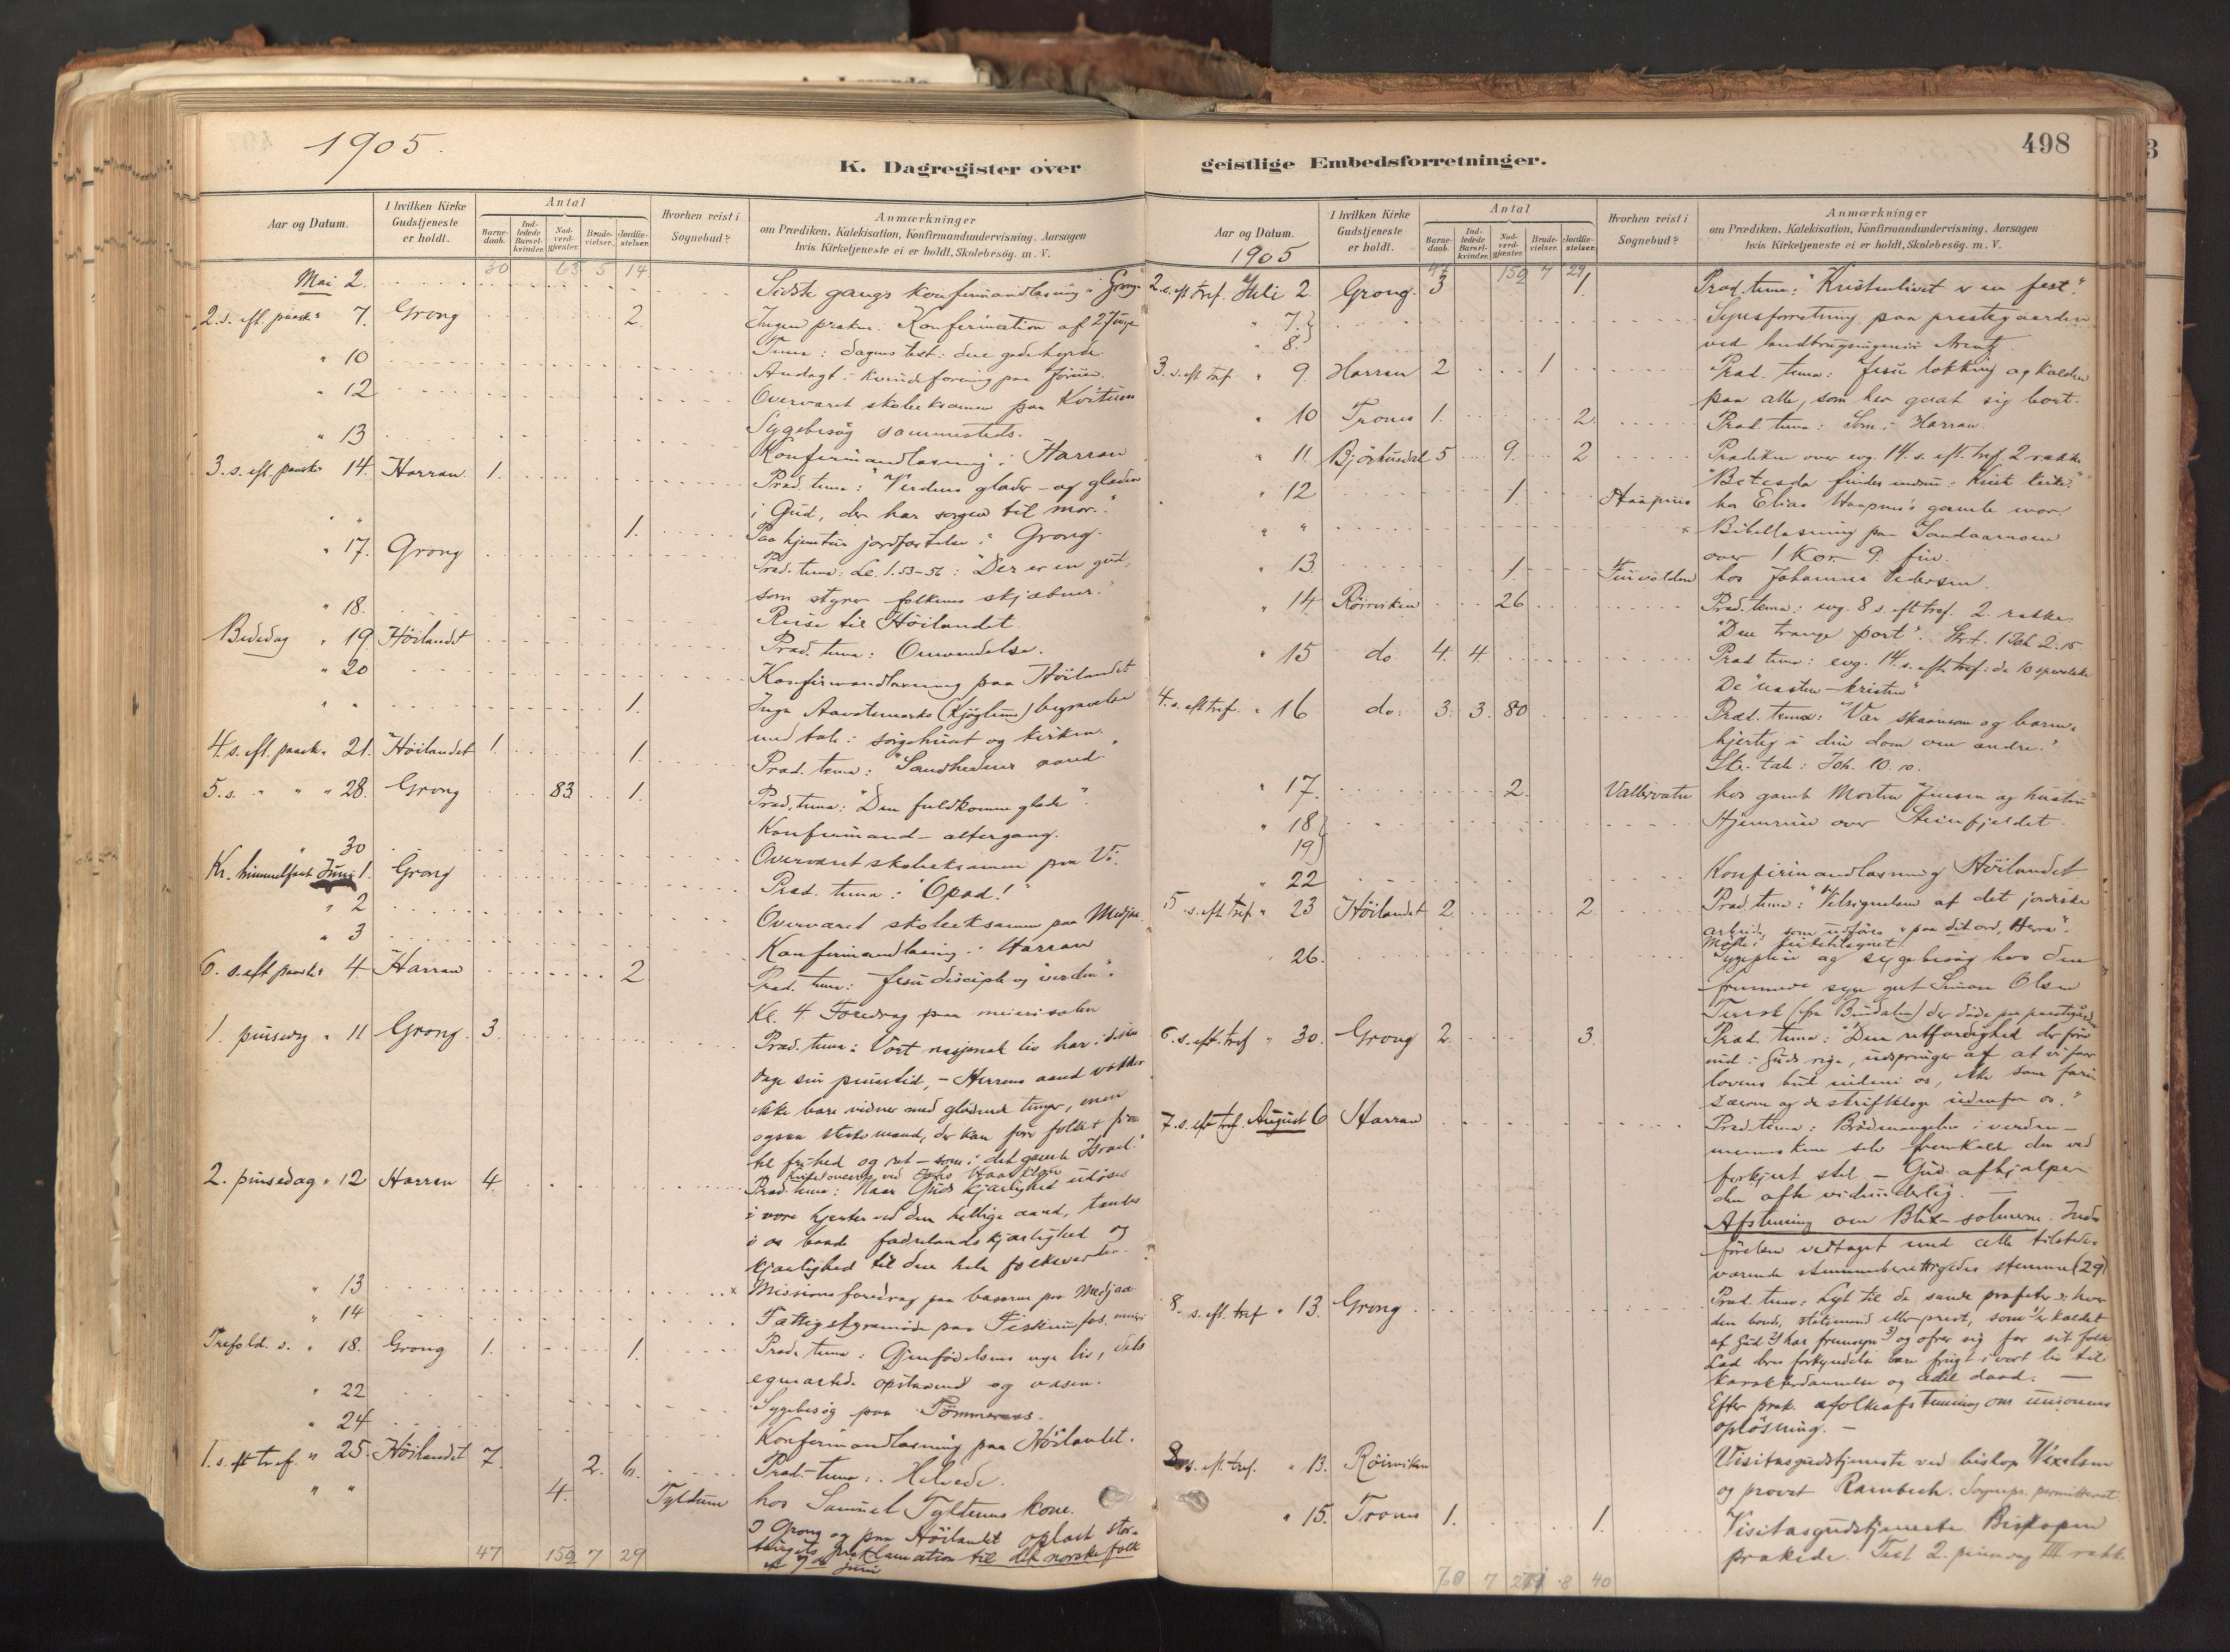 1905.
498
K. Dagregister over
geistlige Embedsforretninger.
Aar og Datum.
I hvilken Kirke Gudstjeneste er holdt.
Antal
Barne-daab.
Ind-ledede Barsel-kvinder.
Nad-verd-gjæster.
Brude-vielser.
Jordfæ-stelser.
Hvorhen reist i Sognebud?
Anmærkninger
om Prædiken, Katekisation, Konfirmandundervisning, Aarsagen
hvis Kirketjeneste ei er holdt, Skolebesög. m. V.
30 63 5 14
Mai 2. Sidste gangs konfirmandlæsning i Grong
2. s. eft. paaske 7. Grong 2. Ingen præken. Konfirmation af 27 unge
Tema: dagens text: den gode hyrde.
" 10 Andagt i kvindeforening paa
" 12 Overværet skoleeksamen paa
" 13 Sygebesøg sammesteds.
Konfirmandlæsning i Harran
3. s. eft. paaske 14. Harran 1. Præd. tema: "Verdens glæder - og glæden
i Gud, der har sorgen til mor."
" " 1. Paa hjemtur jordfæstelse i Grong.
" 17. Grong Præd. tema: Lc. 1.53-56: "Der er en gud,
som styrer folkenes skjæbner."
" 18. Reise til Höilandet.
Bededag " 19. Höilandet Præd. tema: Omvendelse.
" 20 Konfirmandlæsning paa Höilandet
" " 1. Inga begravelse
med tale i sørgehuset og kirken.
4. s. eft. paaske 21. Höilandet 1. 1. Præd. tema: "Sandhedens aand."
5. s. " " " 28. Grong 83 1. Præd. tema: "Den fuldkomne glæde".
Konfirmand-altergang.
" 30 Overværet skoleeksamen paa
Kr. himmelfart Juni 1. Grong Præd. tema: "Opad!"
" 2 Overværet skoleeksamen paa Medjaa.
" 3 Konfirmandlæsning i Harran
6. s. eft. paaske 4. Harran 2 Præd. tema: Jesu disciple og "verden".
Kl. 4 Foredrag paa
1. pinsedag " 11 Grong. 3. Præd. tema: Vort nasjonale liv har i disse
dage sin pinsetid, - Herrens aand vækker
ikke bare vidner med glødende tunger, men
ogsaa sterke mænd, der kan føre folket frem
til frihed og ret - som i det gamle Israel.
2. pinsedag " 12 Harran 4. Præd. tema: Naar Guds kjærlighed udøses
i vore hjerter ved den hellige aand, tændes
i os baade fædrelandskjærlighed og
kjærlighed til den hele folkeverden.
" 13 x Missionsforedrag paa basaren paa Medjaa
" 14 Fattigstyremøde paa Fiskumfos
Trefold. s. " 18. Grong 1. 1. Præd. tema: Gjenfødelsens nye liv, dets
egenartede opstaaend og væsen.
" 22 Sygebesøg paa Tömmeraas.
" 24 Konfirmandlæsning paa Höilandet.
1. s. eft tref. " 25. Höilandet 7. 2. 6. Præd.-tema: Helvede.
" " 4. Tyldum hos Samuel Tyldums kone.
I Grong og paa Höilandet oplæst stor-
tingets proklamation til det norske folk
af 7de juni
47 152 7 29
Aar og Datum.
1905
I hvilken Kirke Gudstjeneste er holdt.
Antal
Barne-daab.
Ind-ledede Barsel-kvinder.
Nad-verd-gjæster.
Brude-vielser.
Jordfæ-stelser.
Hvorhen reist i Sognebud?
Anmærkninger
om Prædiken, Katekisation, Konfirmandundervisning, Aarsagen
hvis Kirketjeneste ei er holdt, Skolebesög. m. V.
47 152 7 29
2. s. eft tref. Juli 2. Grong. 3 1. Præd. tema: "Kristenlivet er en fest."
" 7. Synsforretning paa prestegaarden
" 8. ved landbrugsingeniør Arentz
3. s. eft tref. " 9. Harran 2 1 Præd. tema: Jesu lokking og kalden
paa alle, som har gaat sig bort.
" 10 Trones 1. 2. Præd. tema: Som i Harran.
" 11. Bjørhusdal 5 9. 2 Prædiken over evg. 14. s. eft. tref. 2 række
"Betesda findes endnu: Kristi kirke."
" 12 1. Haapnes hos Elias Haapnes's gamle mor.
" " x Bibellæsning paa Sandaamoen
over 1 Kor. 9. fin.
" 13. 1. hos Johannes Pedersen.
" 14 Röirviken 26 Præd. tema: evg. 8 s. eft tref. 2. række.
"Den trange port". Skrt. 1 Joh 2.15
" 15 do. 4. 4 Præd tema: evg. 14. s. eft. tref.: de 10 spedalske
De "næsten-kristne"
4. s. eft tref. " 16 do. 3. 3. 80 Præd. tema: "Vær skaansom og barm-
hjertig i din dom om andre."
Skr. tale: Joh. 10.10.
" 17. 2. hos gamle Morten Jensen og hustru
" 18 Hjemreise over Steinfjeldet
19
" 22 Konfirmandlæsning Höilandet
5. s. eft tref. " 23 Höilandet 2. 2. Præd. tema: "Velsignelsen af det jordiske
arbeide, som udføres "paa dit ord, Herre".
Møde i kirketilsynet.
" 26. Sygepleie og sygebesøg hos den
fremmede syge gut Simon Olsen
Terråk (fra Bindalen) der døde paa prestegården
6. s. eft. tref " 30. Grong 2. 3. Præd. tema: "Den retfærdighed der fører
ind i Guds rige, udspringer af, at vi faar
lovens bud indeni os, ikke som fari-
sæerne og de skriftkloge udenfor os."
7. s. eft tref. August 6 Harran Præd tema: Brødmangelen i verden -
menneskene selv fremkalder den ved
forkjert stel - Gud afhjælper
den ofte vidunderlig. -
Afstemning om Blix-salmerne. Ind-
førelsen vedtaget med alle tilstede-
værende stemmeberettigedes stemmer (29)
8. s. eft. tref " 13. Grong. Præd. tema: Lyt til de sande profeter: hver
den bonde, statsmand eller prest, som 1) er kaldet
af Gud 2) har fremsyn 3) og ofrer sig for sit folk
Lad deres forkyndelse bære frugt i vort liv til
karakterdannelse og ædel daad. -
Efter præk. folkeafstemning om unionens
opløsning. -
8. s. eft. tref. " 13. Röirviken Visitasgudstjeneste ved biskop Wexelsen
og provst Rambech. Sognepr. permitteret.
" 15. Trones 1. 1. Visitasgudstjeneste Biskopen
prækede. Text 2. pinsedag III række
70 7 8 40